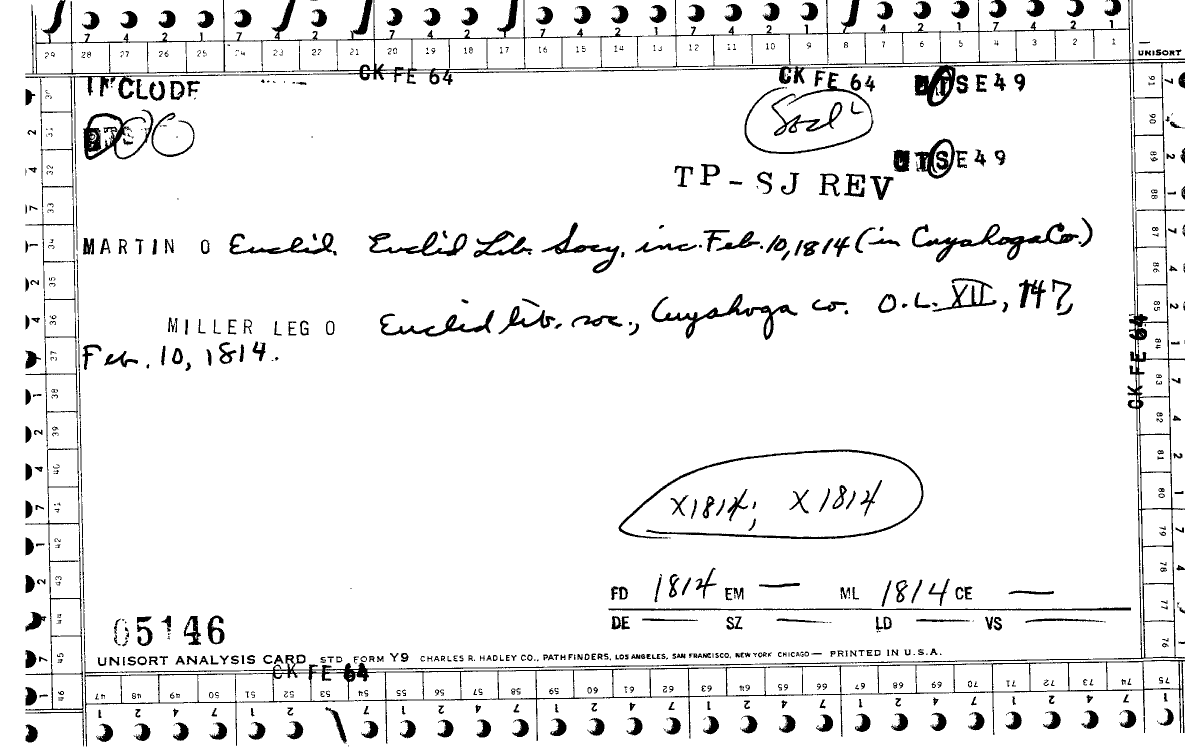 29 28 27 26 25 24 23 22 21 20 19 18 17 16 15 14 13 12 11 10 9 8 7 6 5 4 3 2 1 UNISORT
INCLUDE CK FE 64 CK FE 64 UTSE49
Socl
UTSE49
TP-SJ REV
MARTIN O Euclid. Euclid Lib. Socy. inc. Feb. 10, 1814 (in Cuyahoga Co.)
MILLER LEG O Euclid lib. soc., Cuyahoga co. O.L. XII, 147,
Feb. 10, 1814.
CK FE 64
X1814; X1814
FD 1814 EM — ML 1814 CE —
DE — SZ — LD — VS —
05146
UNISORT ANALYSIS CARD STD FORM Y9 CHARLES R. HADLEY CO., PATHFINDERS, LOS ANGELES, SAN FRANCISCO, NEW YORK CHICAGO — PRINTED IN U.S.A.
CK FE 64
46 47 48 49 50 51 52 53 54 55 56 57 58 59 60 61 62 63 64 65 66 67 68 69 70 71 72 73 74 75